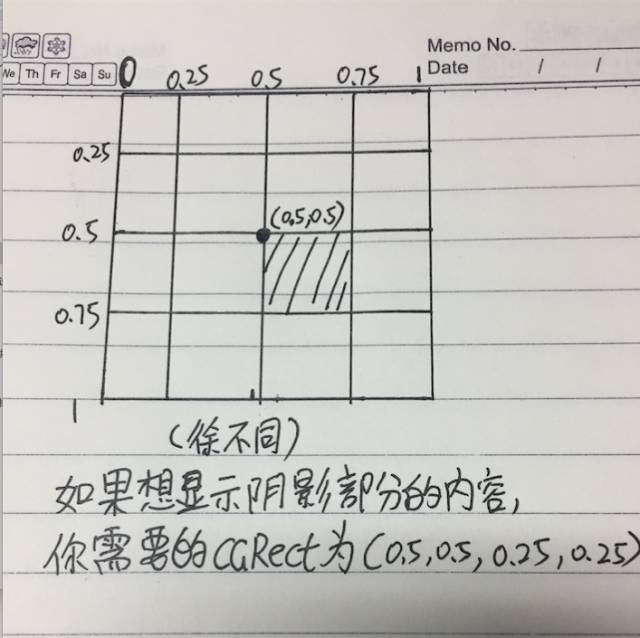 Memo No.
We Th Fr Sa Su
Date / /
0 0.25 0.5 0.75 1
0.25
(0.5,0.5)
0.5
0.75
1
(徐不同)
如果想显示阴影部分的内容,
你需要的CGRect为(0.5,0.5,0.25,0.25)